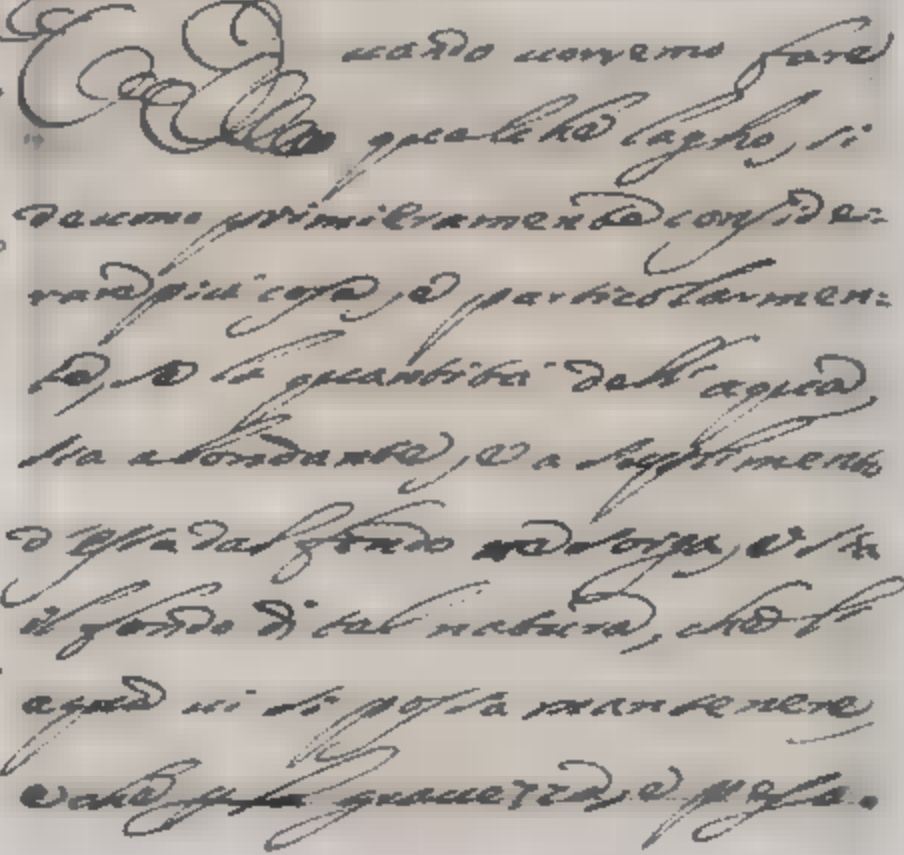 Quando uoremo fare
qualche lagho, si
deuemo primieramente conside=
rare più cose, e particolarmen=
te, se la quantità dell'aqua
sia abondante, e a suplimento
d'essa dal fondo nasca, e sia
il fondo di tal natura, che l'
aqua ui si possa mantenere
e che per grauezza, e pesa.